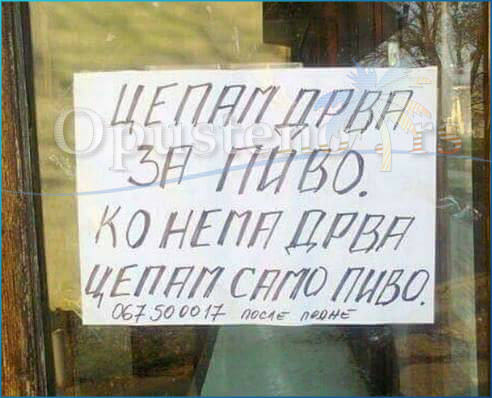 ЦЕПАМ ДРВА
ЗА ПИВО.
КО НЕМА ДРВА
ЦЕПАМ САМО ПИВО.
067500017 ПОСЛЕ ПОДНЕ